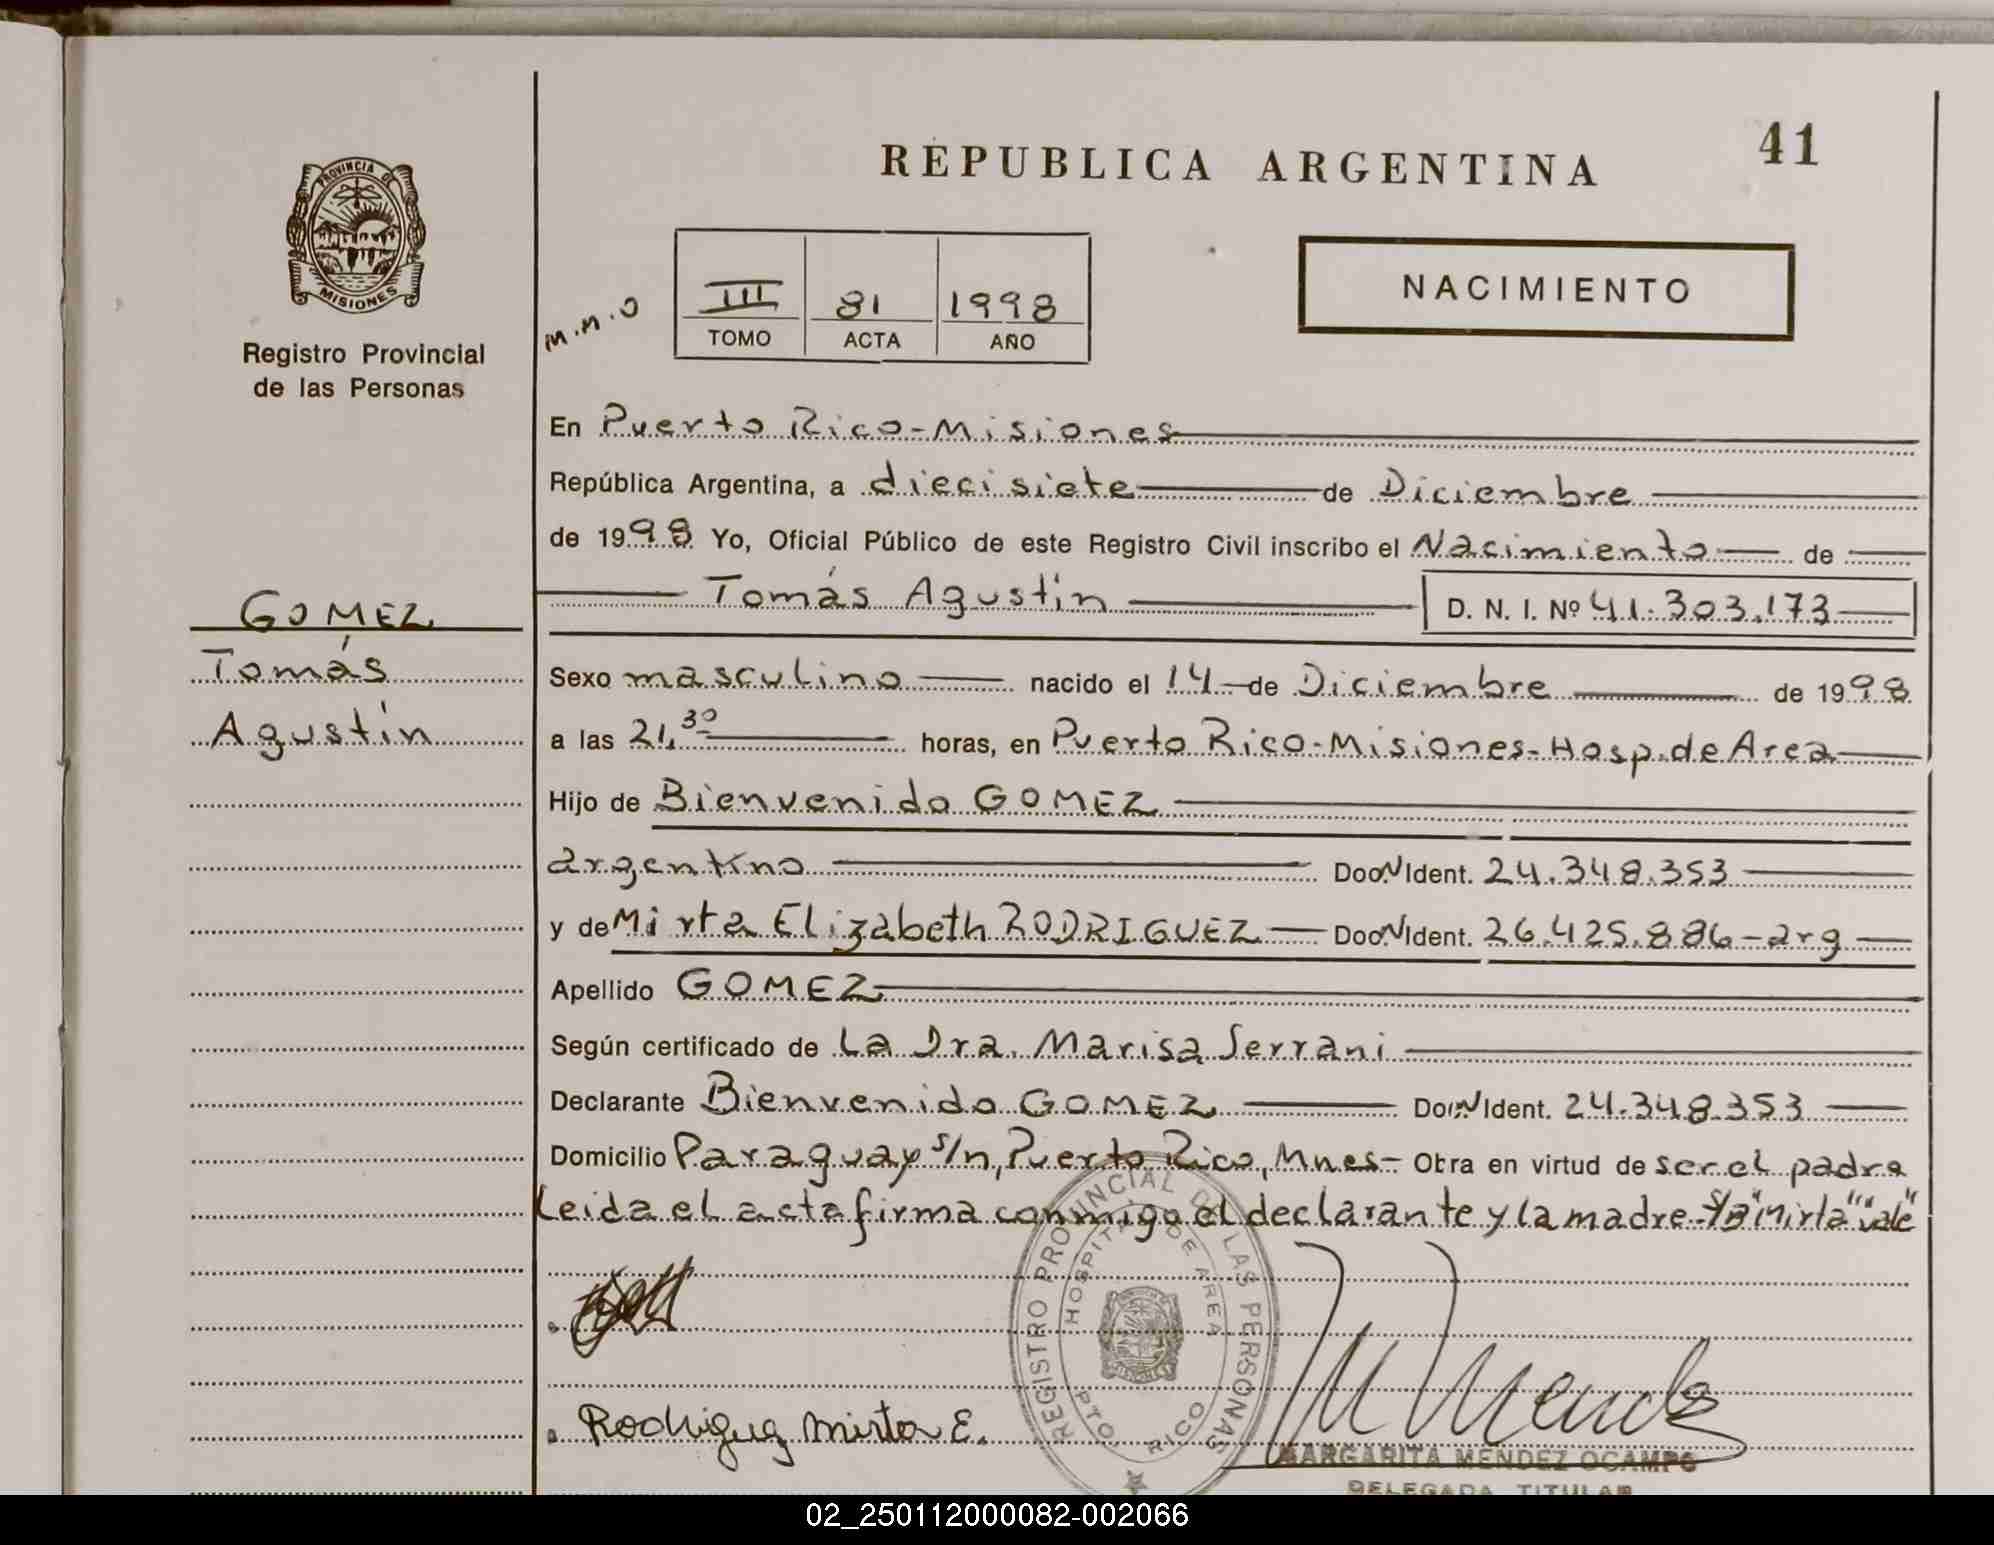 REPUBLICA ARGENTINA
41
PROVINCIA DE
MISIONES
Registro Provincial
de las Personas
m.n.o
III 81 1998
TOMO ACTA AÑO
NACIMIENTO
En Puerto Rico-Misiones
República Argentina, a diecisiete de Diciembre
de 1998 Yo, Oficial Público de este Registro Civil inscribo el Nacimiento de
Tomás Agustín D. N. I. Nº 41.303.173
GOMEZ
Tomás
Agustín
Sexo masculino nacido el 14 de Diciembre de 1998
a las 21,30 horas, en Puerto Rico-Misiones-Hosp.de Area
Hijo de Bienvenido GOMEZ
argentino Doc. N Ident. 24.348.353
y de Mirta Elizabeth RODRIGUEZ Doc. N Ident. 26.425.886-arg
Apellido GOMEZ
Según certificado de La Dra. Marisa Serrani
Declarante Bienvenido GOMEZ Doc. N Ident. 24.348.353
Domicilio Paraguay s/n, Puerto Rico, Mnes- Obra en virtud de ser el padre
Leida el acta firma conmigo el declarante y la madre-S/b "Mirta" "vale"
REGISTRO PROVINCIAL DE LAS PERSONAS
HOSPITAL DE AREA
PTO. RICO
Rodriguez Mirta E.
M Mendez
MARGARITA MENDEZ OCAMPO
DELEGADA TITULAR
02_250112000082-002066